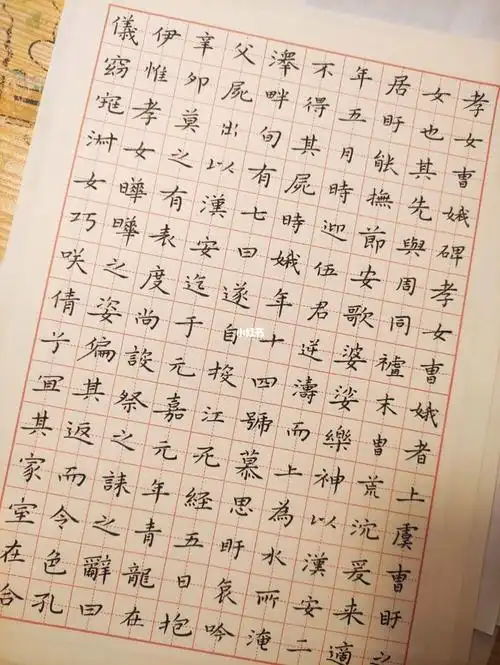 孝女曹娥碑孝女曹娥者上虞曹盱之
女也其先與周同末冑荒沉爰来適
居盱能撫節安歌婆娑樂神以漢安二
年五月時迎伍君逆濤而上為水所淹
不得其屍時娥年十四號慕思盱哀吟
澤畔旬有七日遂自投江死經五日抱
父屍出以漢安迄于元嘉元年青龍在
辛卯莫之有表度尚設祭之誄之辭曰
伊惟孝女曄曄之姿偏其返而令色孔
儀窈窕淑女巧咲倩兮宜其家室在
小红书